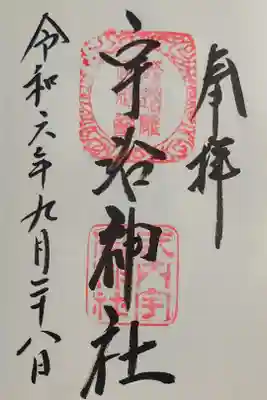 奉拝
宇治神社
令和六年九月二十八日